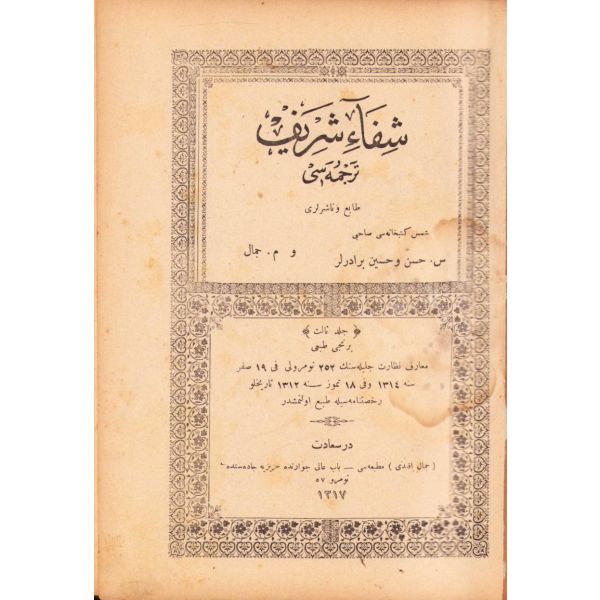 شفاء شریف
ترجمه‌سی
طابع و ناشرلری
شمس کتبخانه‌سی صاحبی
س. حسن و حسین برادرلر و م. جمال
﴿ جلد ثالث ﴾
برنجی طبعی
معارف نظارت جلیله‌سنك ۲۵۲ نومرولی فی ۱۹ صفر
سنه ۱۳۱٤ وفی ۱۸ تموز سنه ۱۳۱۲ تاریخلو
رخصتنامه‌سیله طبع اولنمشدر
در سعادت
( جمال افندی ) مطبعه‌سی — باب عالی جوارنده جاده‌سنده
نومرو ۵۷
۱۳۱۷